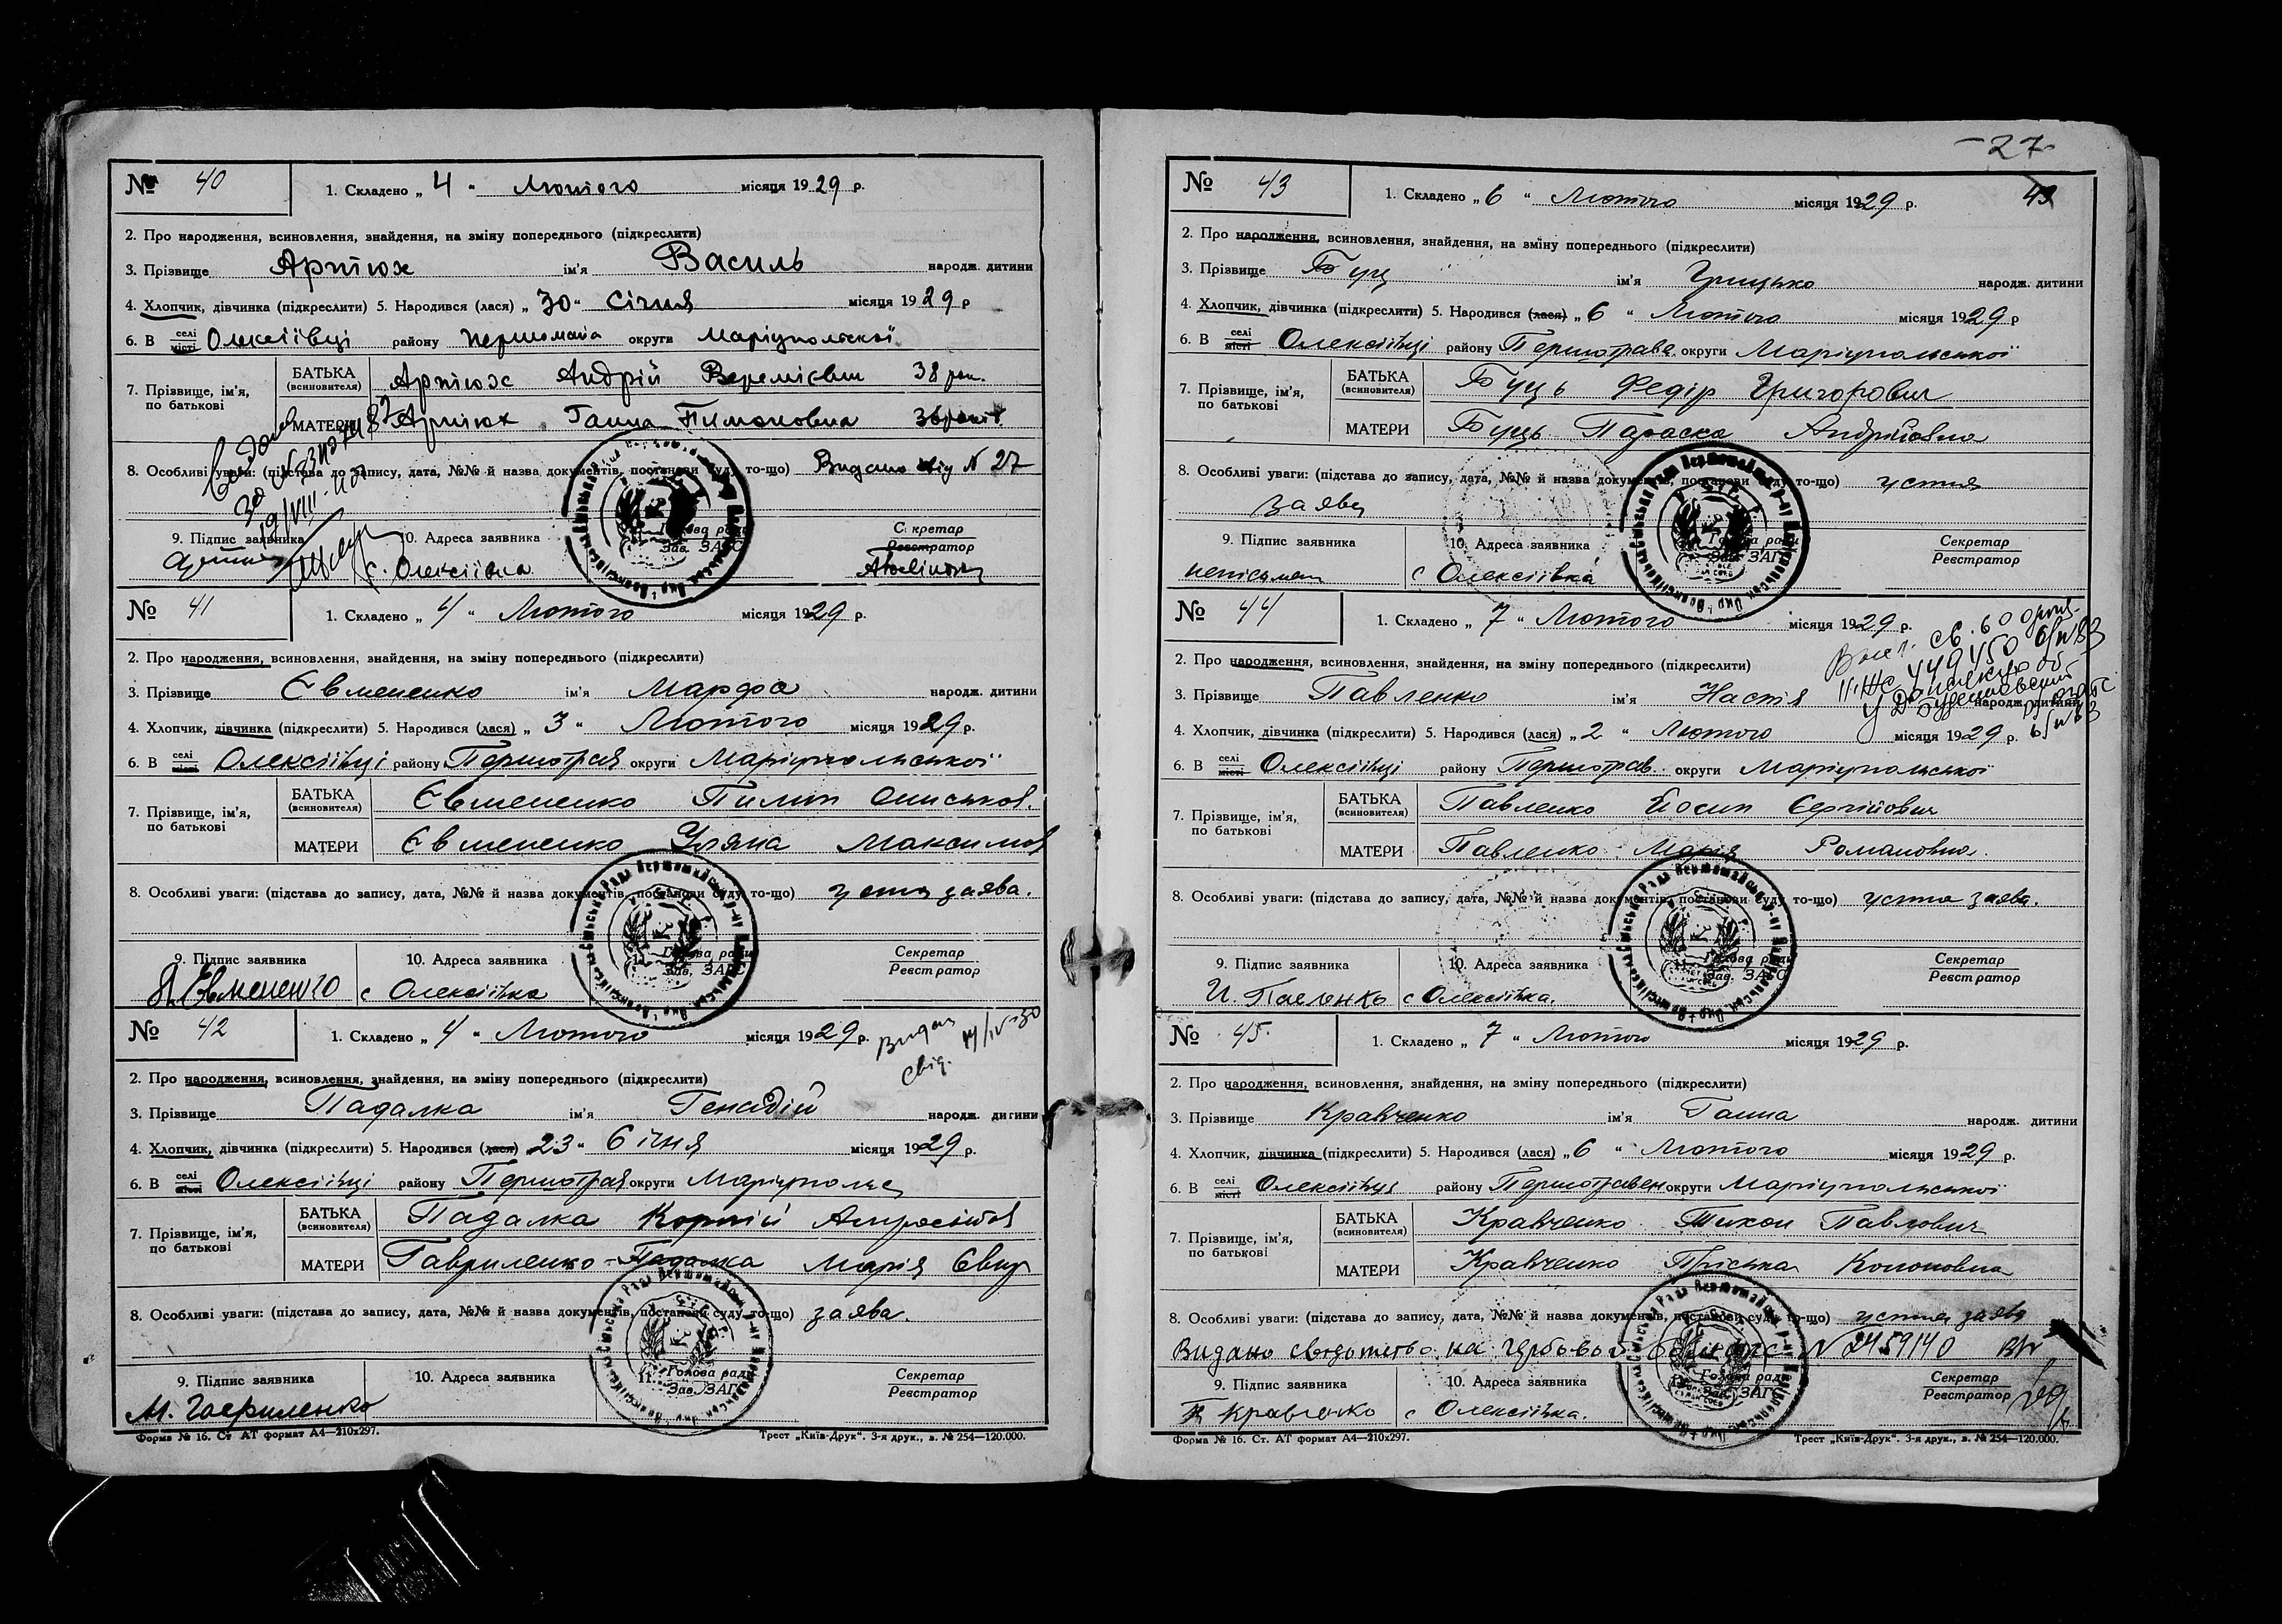 № 40 1. Складено „ 4 “ Лютого місяця 1929 р.
2. Про народження, всиновлення, знайдення, на зміну попереднього (підкреслити)
3. Прізвище Артюх ім'я Василь народж. дитини
4. Хлопчик, дівчинка (підкреслити) 5. Народився (лася) „ 30 “ Січня місяця 1929 р
6. В селі місті Олексіївці району Першома́йа округи Маріупольської
7. Прізвище, ім'я, по батькові
БАТЬКА (всиновителя) Артюх Андрій Веремієвич 38 рок.
МАТЕРИ Артюх Ганна Пимоновна 36 років
8. Особливі уваги: (підстава до запису, дата, №№ й назва документів, постанови суду то-що) Видано від N 27
9. Підпис заявника 10. Адреса заявника Голова ради Зав. ЗАГС Секретар Реєстратор
с. Олексіївка
№ 41 1. Складено „ 4 “ Лютого місяця 1929 р.
2. Про народження, всиновлення, знайдення, на зміну попереднього (підкреслити)
3. Прізвище Євмененко ім'я Марфа народж. дитини
4. Хлопчик, дівчинка (підкреслити) 5. Народився (лася) „ 3 “ Лютого місяця 1929 р.
6. В селі місті Олексіївці району Першотрав округи Маріупольської
7. Прізвище, ім'я, по батькові
БАТЬКА (всиновителя) Євмененко Пилип Ониськов.
МАТЕРИ Євмененко Уляна Максимов
8. Особливі уваги: (підстава до запису, дата, №№ й назва документів, постанови суду то-що) устн заява.
9. Підпис заявника 10. Адреса заявника 11. Голова ради Зав. ЗАГС Секретар Реєстратор
Евмененко с Олексіївка
№ 42 1. Складено „ 4 “ Лютого місяця 1929 р. Видан свід. 14/IV-30
2. Про народження, всиновлення, знайдення, на зміну попереднього (підкреслити)
3. Прізвище Падалка ім'я Генадій народж. дитини
4. Хлопчик, дівчинка (підкреслити) 5. Народився (лася) 23 “ Січня місяця 1929 р.
6. В селі місті Олексіївці району Першотрав округи Маріупольс
7. Прізвище, ім'я, по батькові
БАТЬКА (всиновителя) Падалка Корній Амросійов
МАТЕРИ Гавриленко-Падалка Марія Євг
8. Особливі уваги: (підстава до запису, дата, №№ й назва документів, постанови суду то-що) заява.
9. Підпис заявника 10. Адреса заявника 11. Голова ради Зав. ЗАГС Секретар Реєстратор
М. Гавриленко
Форма № 16. Ст. АТ формат А4—210x297. Трест „Київ-Друк“. 3-я друк., в. № 254—120.000.
27
№ 43 1. Складено „ 6 “ Лютого місяця 1929 р.
2. Про народження, всиновлення, знайдення, на зміну попереднього (підкреслити)
3. Прізвище Буц ім'я Грицько народж. дитини
4. Хлопчик, дівчинка (підкреслити) 5. Народився (лася) „ 6 “ Лютого місяця 1929 р
6. В селі місті Олексіївці району Першотрав округи Маріупольської
7. Прізвище, ім'я, по батькові
БАТЬКА (всиновителя) Буць Федір Григорович
МАТЕРИ Буць Параска Андрійовна
8. Особливі уваги: (підстава до запису, дата, №№ й назва документів, постанови суду то-що) устня
заява
9. Підпис заявника 10. Адреса заявника Голова ради Зав. ЗАГС Секретар Реєстратор
неписьмен с Олексіївка
№ 44 1. Складено „ 7 “ Лютого місяця 1929 р.
2. Про народження, всиновлення, знайдення, на зміну попереднього (підкреслити)
3. Прізвище Павленко ім'я Настя народж. дитини
4. Хлопчик, дівчинка (підкреслити) 5. Народився (лася) „ 2 “ Лютого місяця 1929 р.
6. В селі місті Олексіївці району Першотрав. округи Маріупольської
7. Прізвище, ім'я, по батькові
БАТЬКА (всиновителя) Павленко Йосип Сергійович
МАТЕРИ Павленко Марія Романовна.
8. Особливі уваги: (підстава до запису, дата, №№ й назва документів, постанови суду то-що) устна заява.
9. Підпис заявника 10. Адреса заявника Голова ради Зав. ЗАГС Секретар Реєстратор
И. Павленко с Олексіївка.
№ 45. 1. Складено „ 7 “ Лютого місяця 1929 р.
2. Про народження, всиновлення, знайдення, на зміну попереднього (підкреслити)
3. Прізвище Кравченко ім'я Ганна народж. дитини
4. Хлопчик, дівчинка (підкреслити) 5. Народився (лася) „ 6 “ Лютого місяця 1929 р.
6. В селі місті Олексіївця району Першотравен округи Маріупольської
7. Прізвище, ім'я, по батькові
БАТЬКА (всиновителя) Кравченко Тихон Павлович
МАТЕРИ Кравченко Пріська Кононовна
8. Особливі уваги: (підстава до запису, дата, №№ й назва документів, постанови суду то-що) устня заява
Видано свідотство на гербовой N 2459140
9. Підпис заявника 10. Адреса заявника Голова ради Зав. ЗАГС Секретар Реєстратор
Кравченко с Олексіївка.
Форма № 16. Ст. АТ формат А4—210x297. Трест „Київ-Друк“. 3-я друк., в. № 254—120.000.